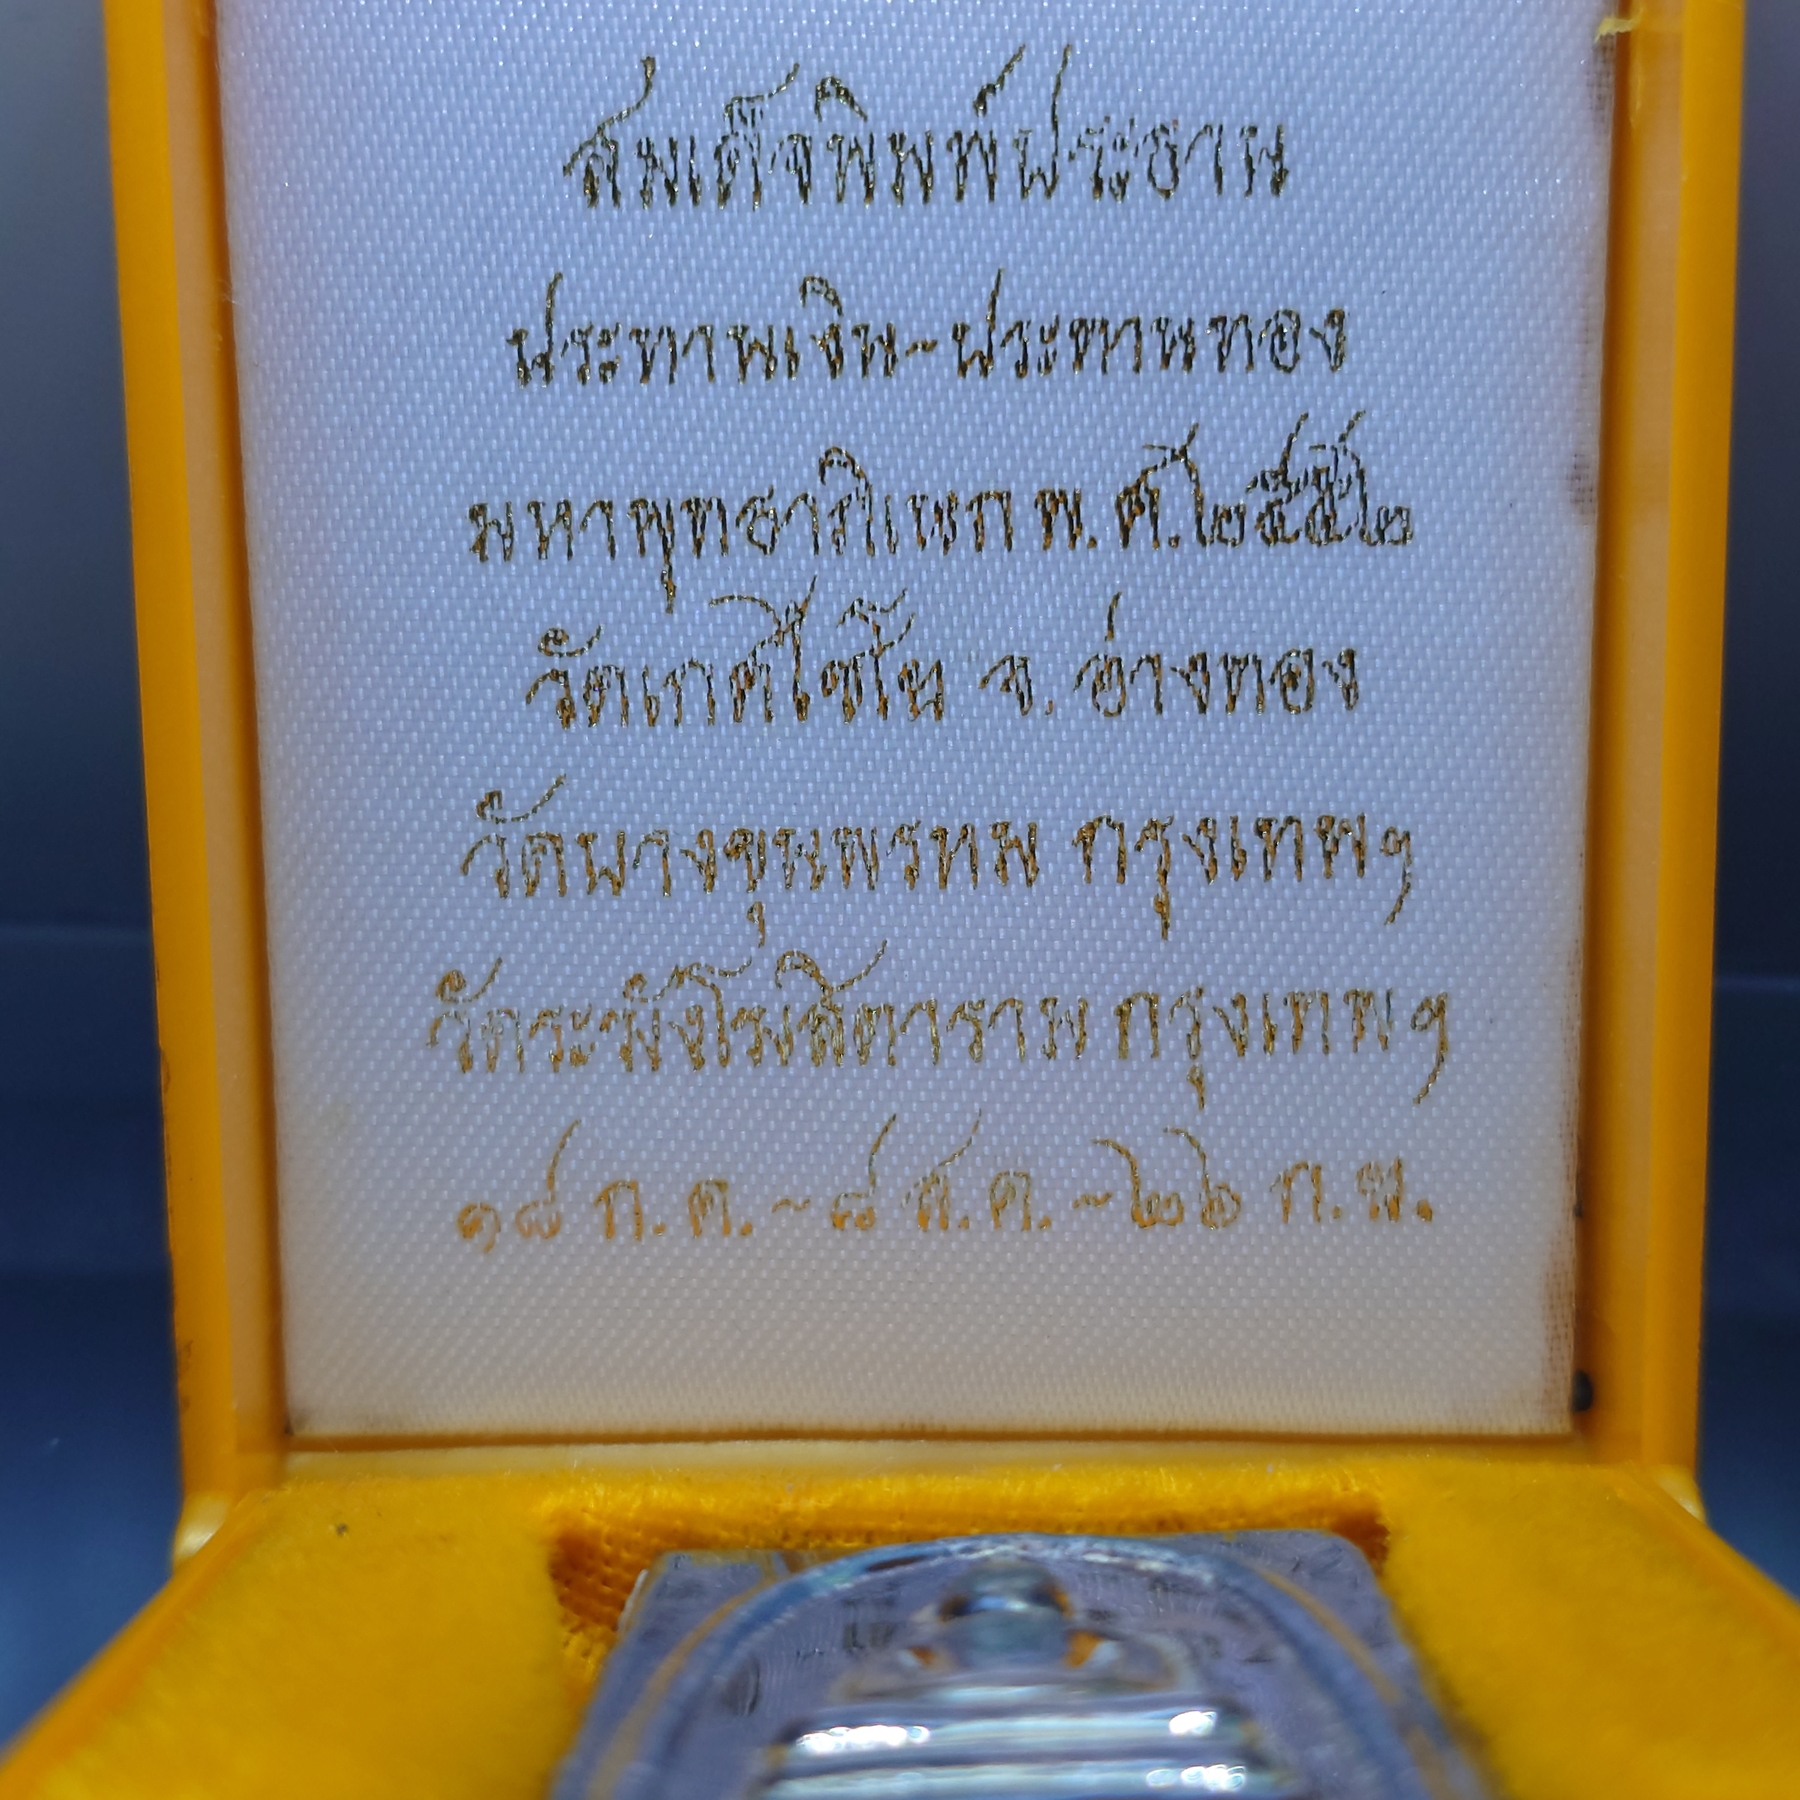 สมเด็จพิมพ์ประธาน
ประทานเงิน-ประทานทอง
มหาพุทธาภิเษก พ.ศ.๒๕๕๒
วัดเกศไชโย จ. อ่างทอง
วัดบางขุนพรหม กรุงเทพฯ
วัดระฆังโฆสิตาราม กรุงเทพฯ
๑๘ ก.ค.-๘ ส.ค.-๒๒ ก.พ.